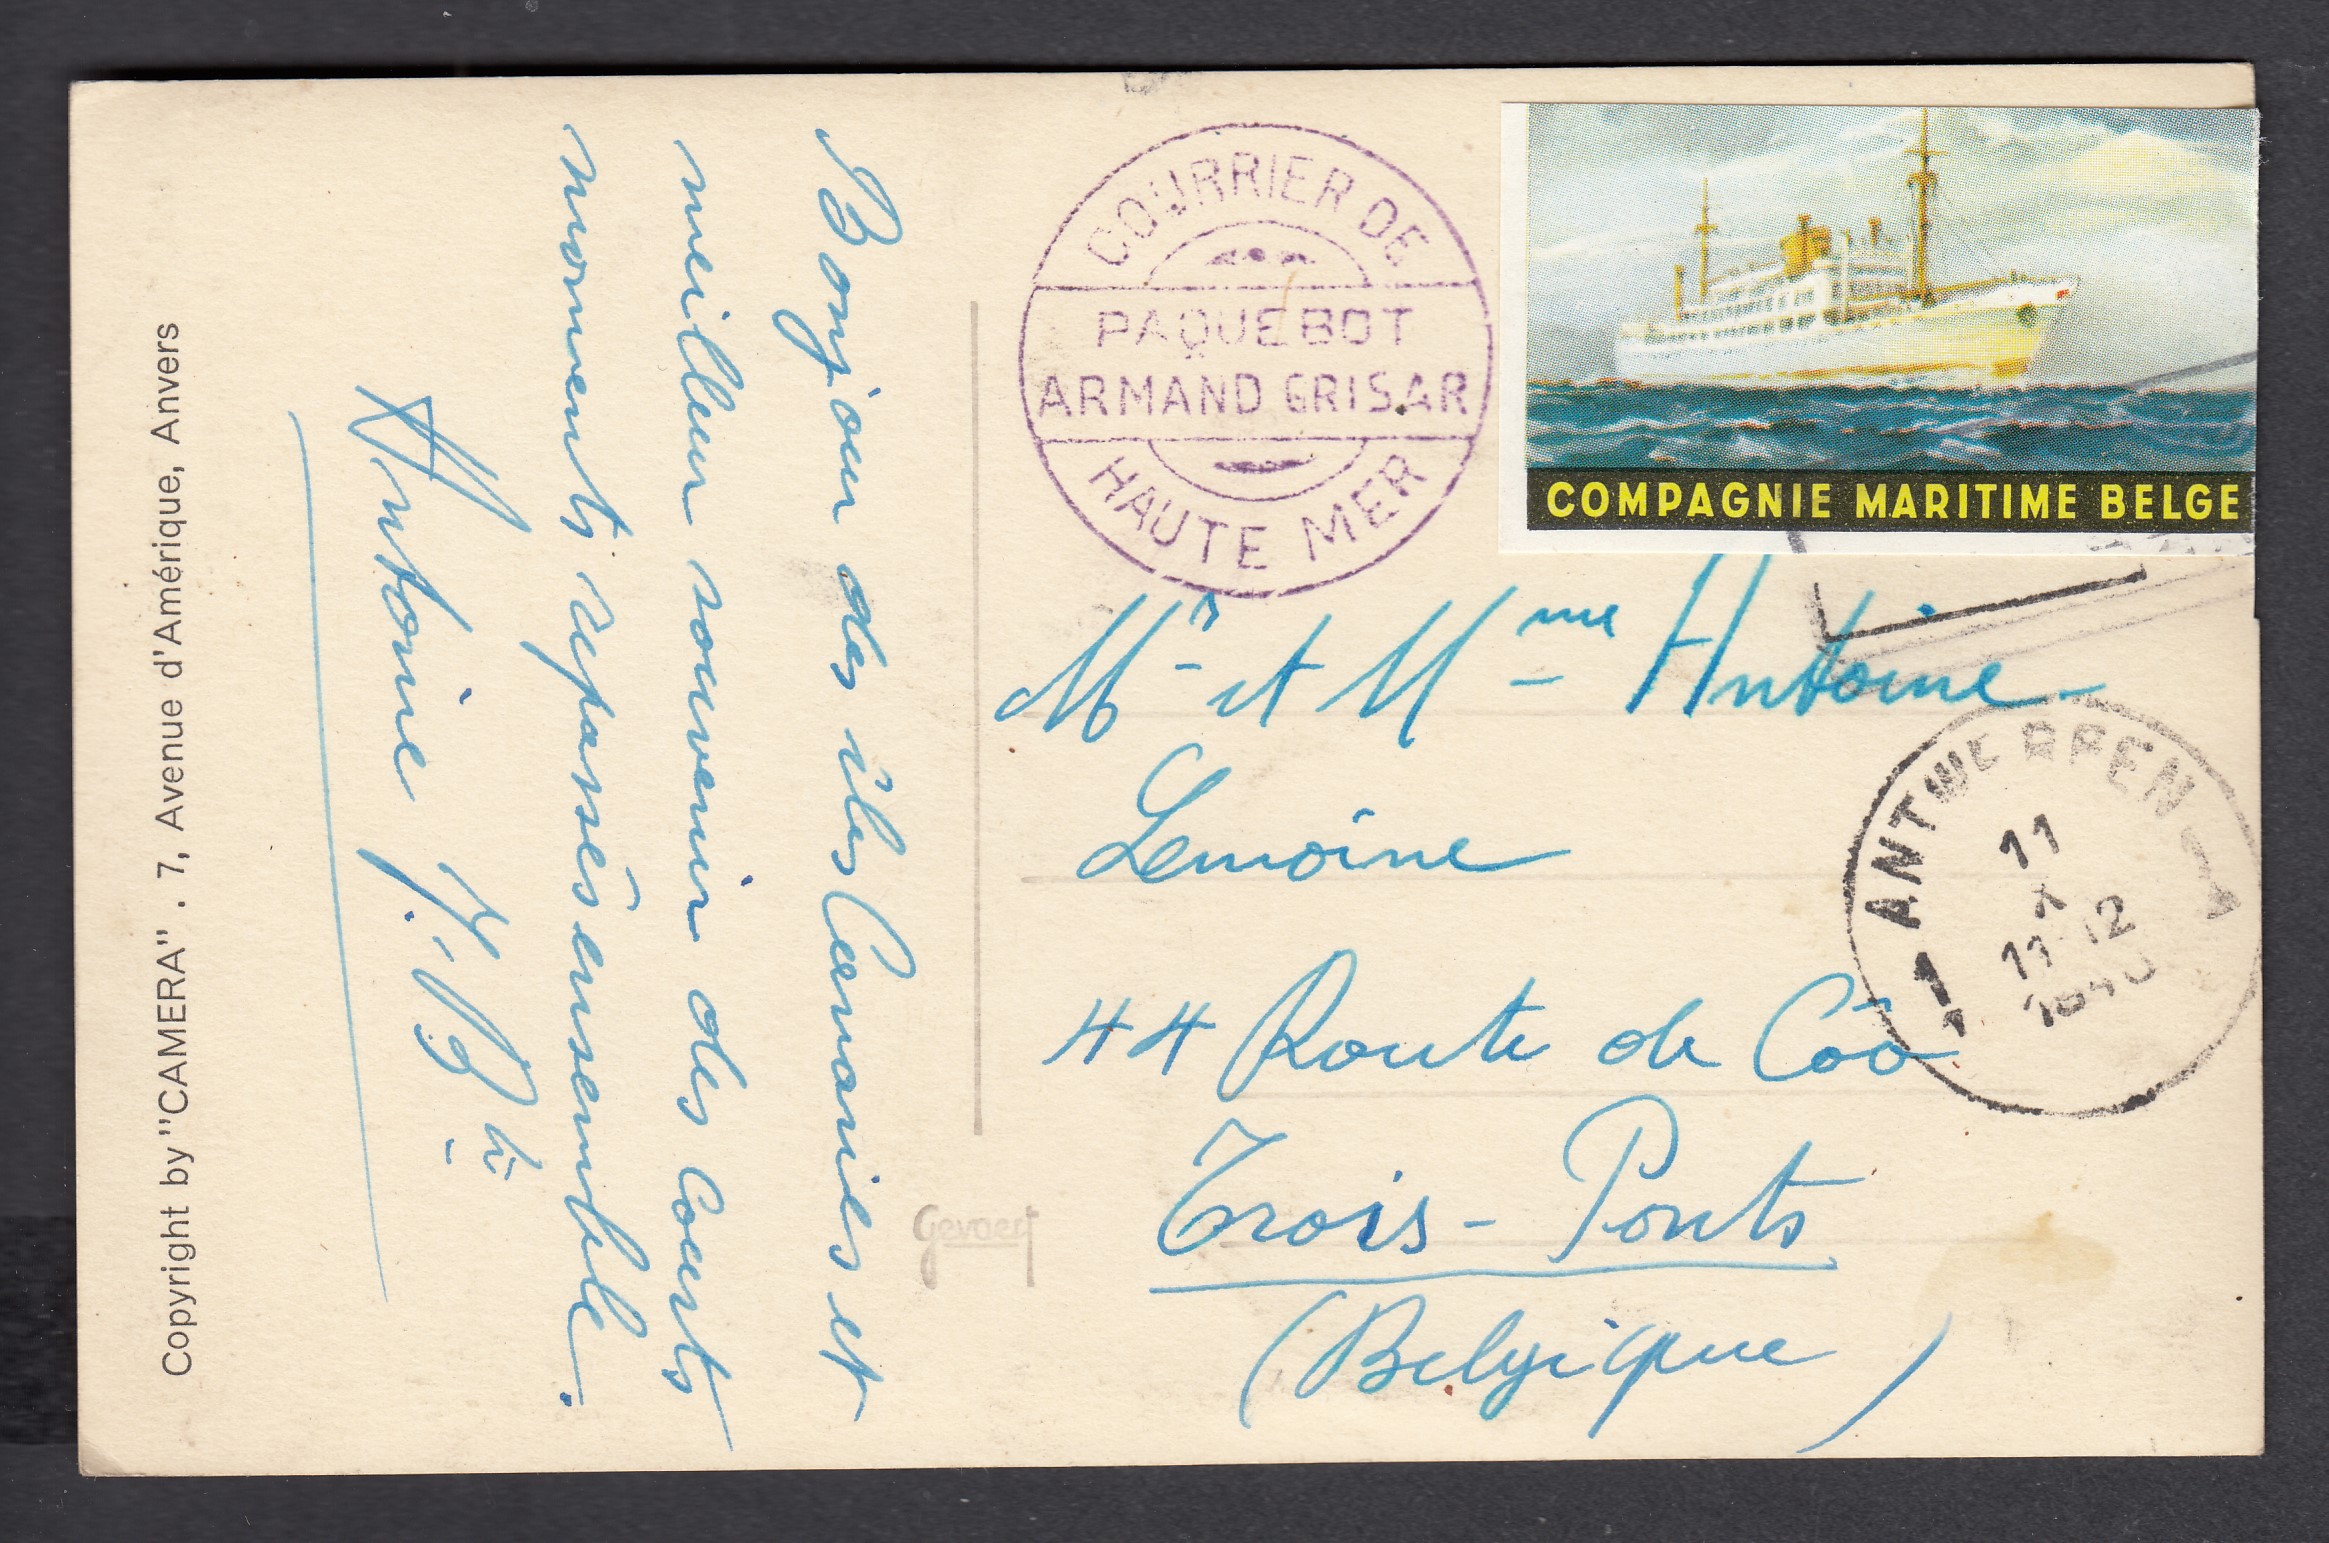 Bonjour des îles Canaries et
meilleur souvenir des courts
moments repassés ensemble.
Antoine
Copyright by "CAMERA". 7, Avenue d'Amérique, Anvers
COURRIER DE
PAQUEBOT
ARMAND GRISAR
HAUTE MER
COMPAGNIE MARITIME BELGE
Mr et Mme Antoine
Lemoine
44 Route de Coô
Trois-Ponts
(Belgique)
ANTWERPEN
11
12
Gevaert